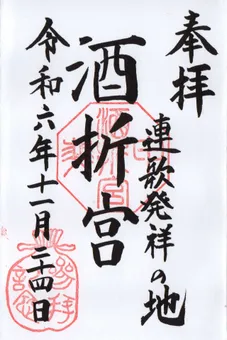 奉拝
連歌発祥の地
酒折宮
令和六年十一月二十四日